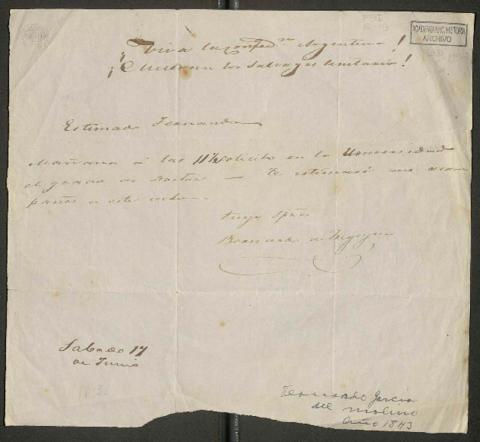 ¡Viva la Confed.on Argentina!
¡Mueran los Salvages Unitarios!
ACAD. NAC. HISTORIA
ARCHIVO
Estimado Fernando
Mañana á las 11½ solicito en la Universidad
el grado de Doctor — Te estimaré me acom
pañes a este acto.
Tuyo
Bernardo de Irigoyen
Sabado 17
de Junio
Fernando García
del Molino
Año 1843